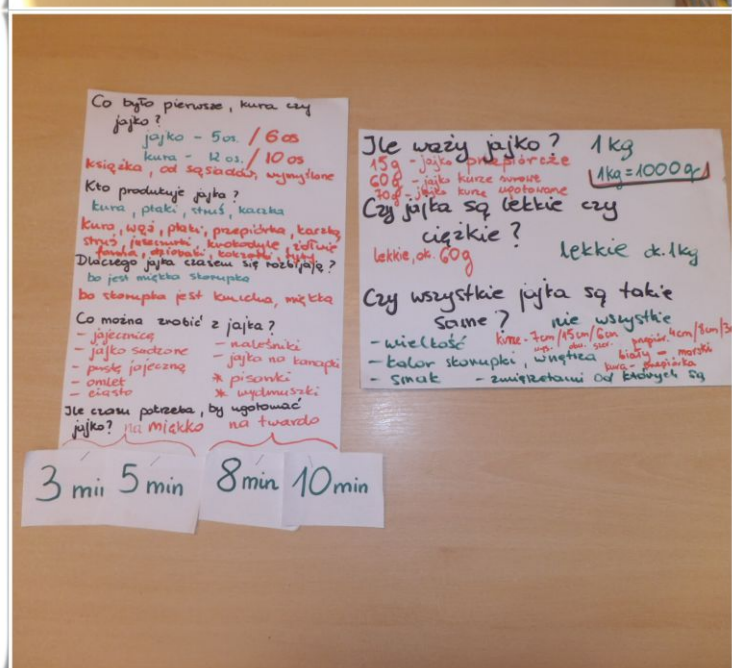 Co było pierwsze, kura czy
jajko?
jajko - 5 os. / 6 os
kura - 12 os. / 10 os
książka, od sąsiadów, wymyślone
Kto produkuje jajka?
kura, ptaki, struś, kaczka
kura, wąż, ptaki, przepiórka, kaczka,
struś, jaszczurki, krokodyle, żółwie
dziobaki, kolczatki,
Dlaczego jajka czasem się rozbijają?
bo jest miękka skorupka
bo skorupka jest krucha, miękka
Co można zrobić z jajka?
- jajecznicę
- jajko sadzone
- pastę jajeczną
- omlet
- ciasto
- naleśniki
- jajko na kanapki
* pisanki
* wydmuszki
Ile czasu potrzeba, by ugotować
jajko? na miękko na twardo
3 min 5 min 8 min 10 min
Ile waży jajko? 1 kg
15g - jajko przepiórcze
60g - jajko kurze surowe
70g - jajko kurze ugotowane
1kg = 1000 g
Czy jajka są lekkie czy
ciężkie?
lekkie, ok. 60g
lekkie ok. 1kg
Czy wszystkie jajka są takie
same? nie wszystkie
- wielkość kurze - 7cm/15cm/6cm przepiór. 4cm/8cm/3
wys. obw. szer.
- kolor skorupki, wnętrza biały -
kura - przepiórka
- smak - zwierzętami od których są